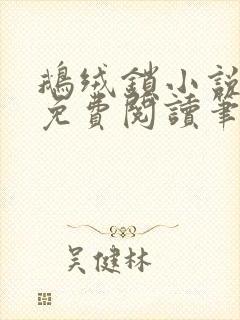 鵝絨鎖小說
免費閱讀筆
吴健林